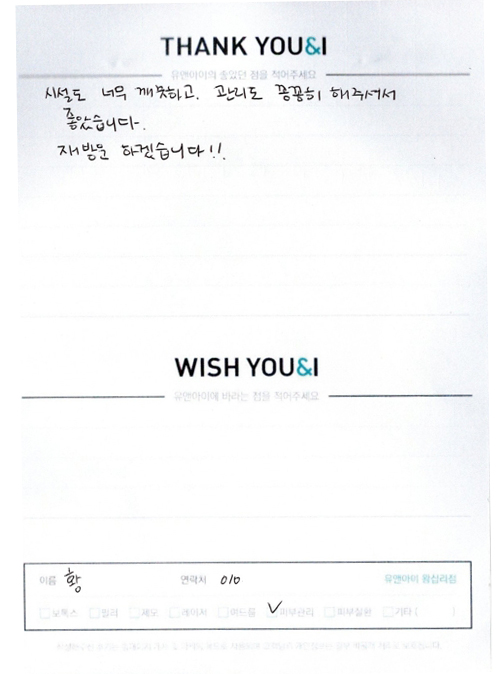 THANK YOU&I
유앤아이의 좋았던 점을 적어주세요
시설도 너무 깨끗하고. 관리도 꼼꼼히 해주셔서
좋았습니다.
재방문 하겠습니다!!
WISH YOU&I
유앤아이에 바라는 점을 적어주세요
이름 황 연락처 010 유앤아이 왕십리점
보톡스 필러 제모 레이저 여드름 ✓피부관리 피부질환 기타 ( )